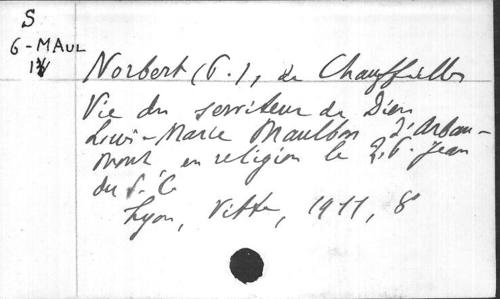 S
6-MAUL
Norbert (P.), de Chauffailles
Vie du serviteur de Dieu
Louis-Marie Maulbon d'Arbau-
mont en religion le R.P. Jean
du S. C.
Lyon, Vitte, 1911, 8°